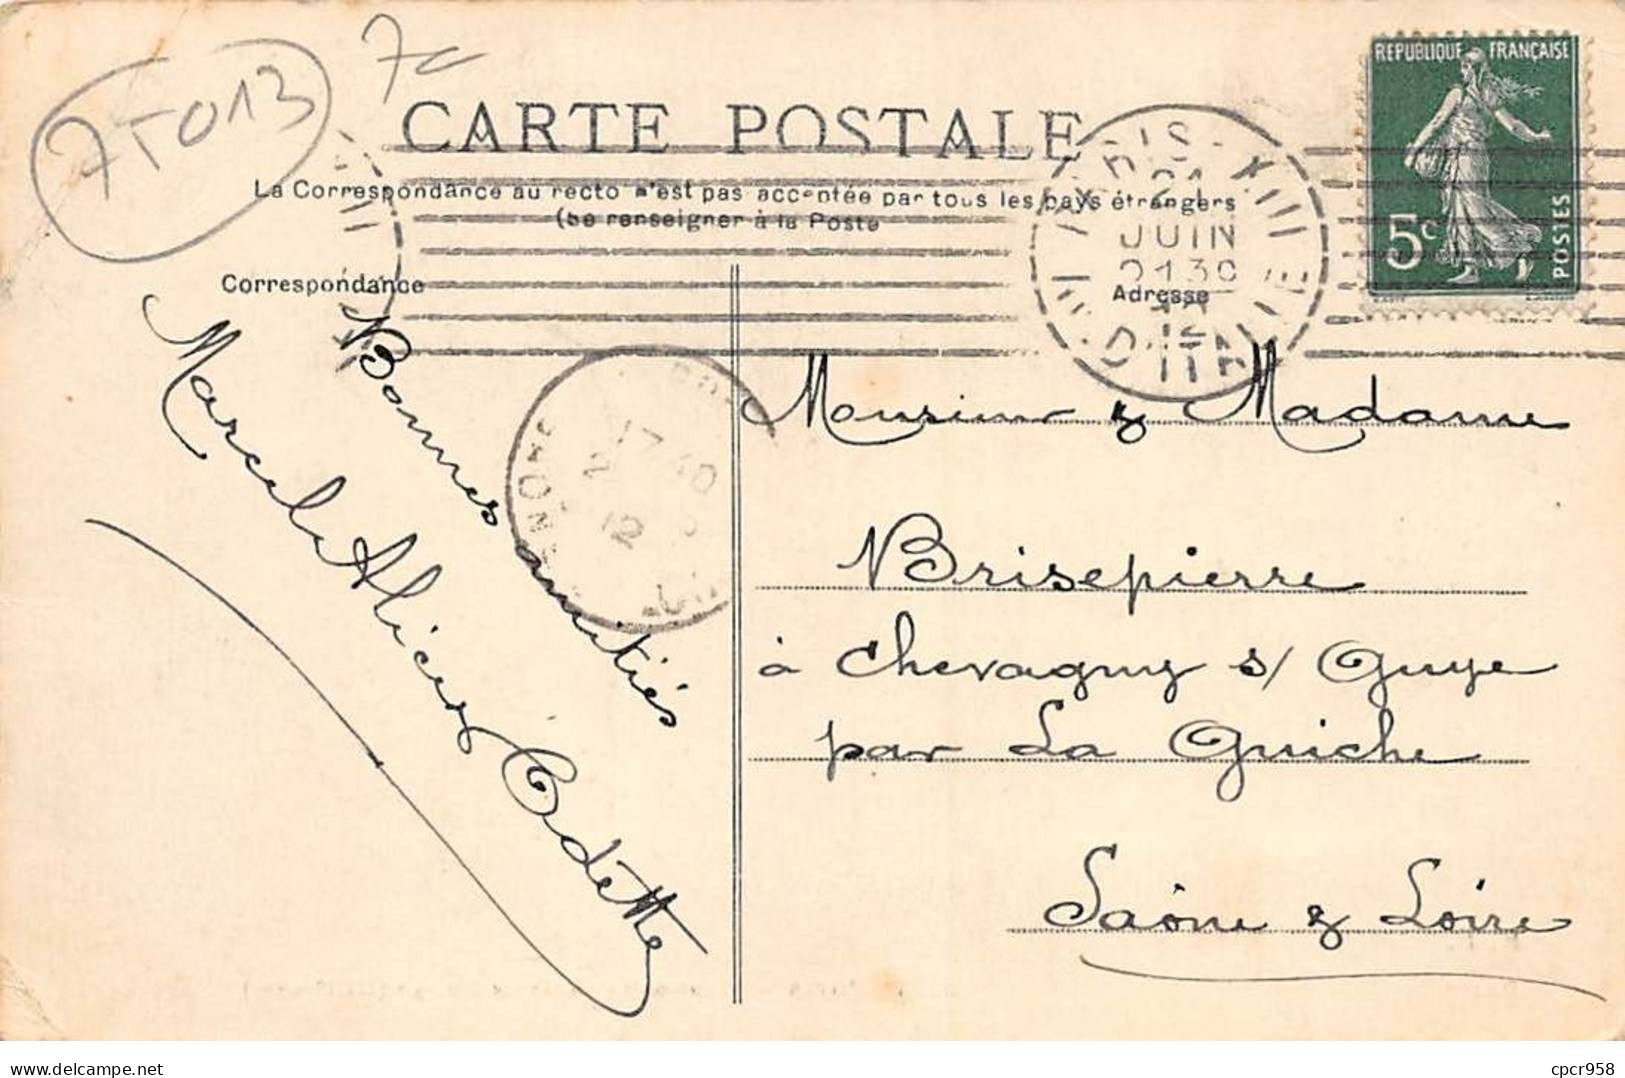 7T013
7c
REPUBLIQUE FRANÇAISE
5c
POSTES
CARTE POSTALE
La Correspondance au recto n'est pas acceptée par tous les pays étrangers
(se renseigner à la Poste
JUIN
Correspondance
Adresse
Bonnes amitiés
Marcel Alice & Odette
Monsieur & Madame
Brisepierre
à Chevagny s/ Guye
par La Guiche
Saône & Loire
delcampe.net
cpcr958